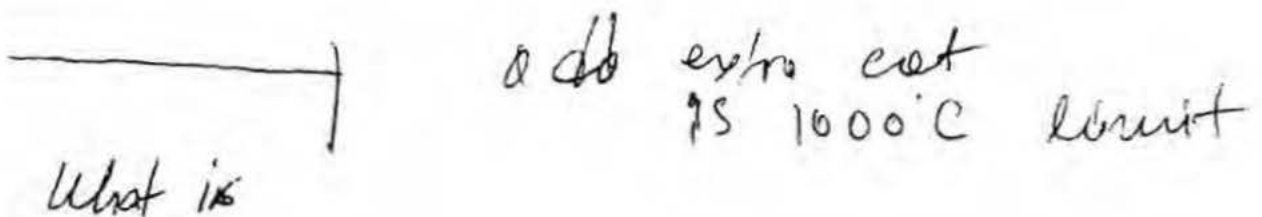 add extra cat
is 1000°C limit
What is